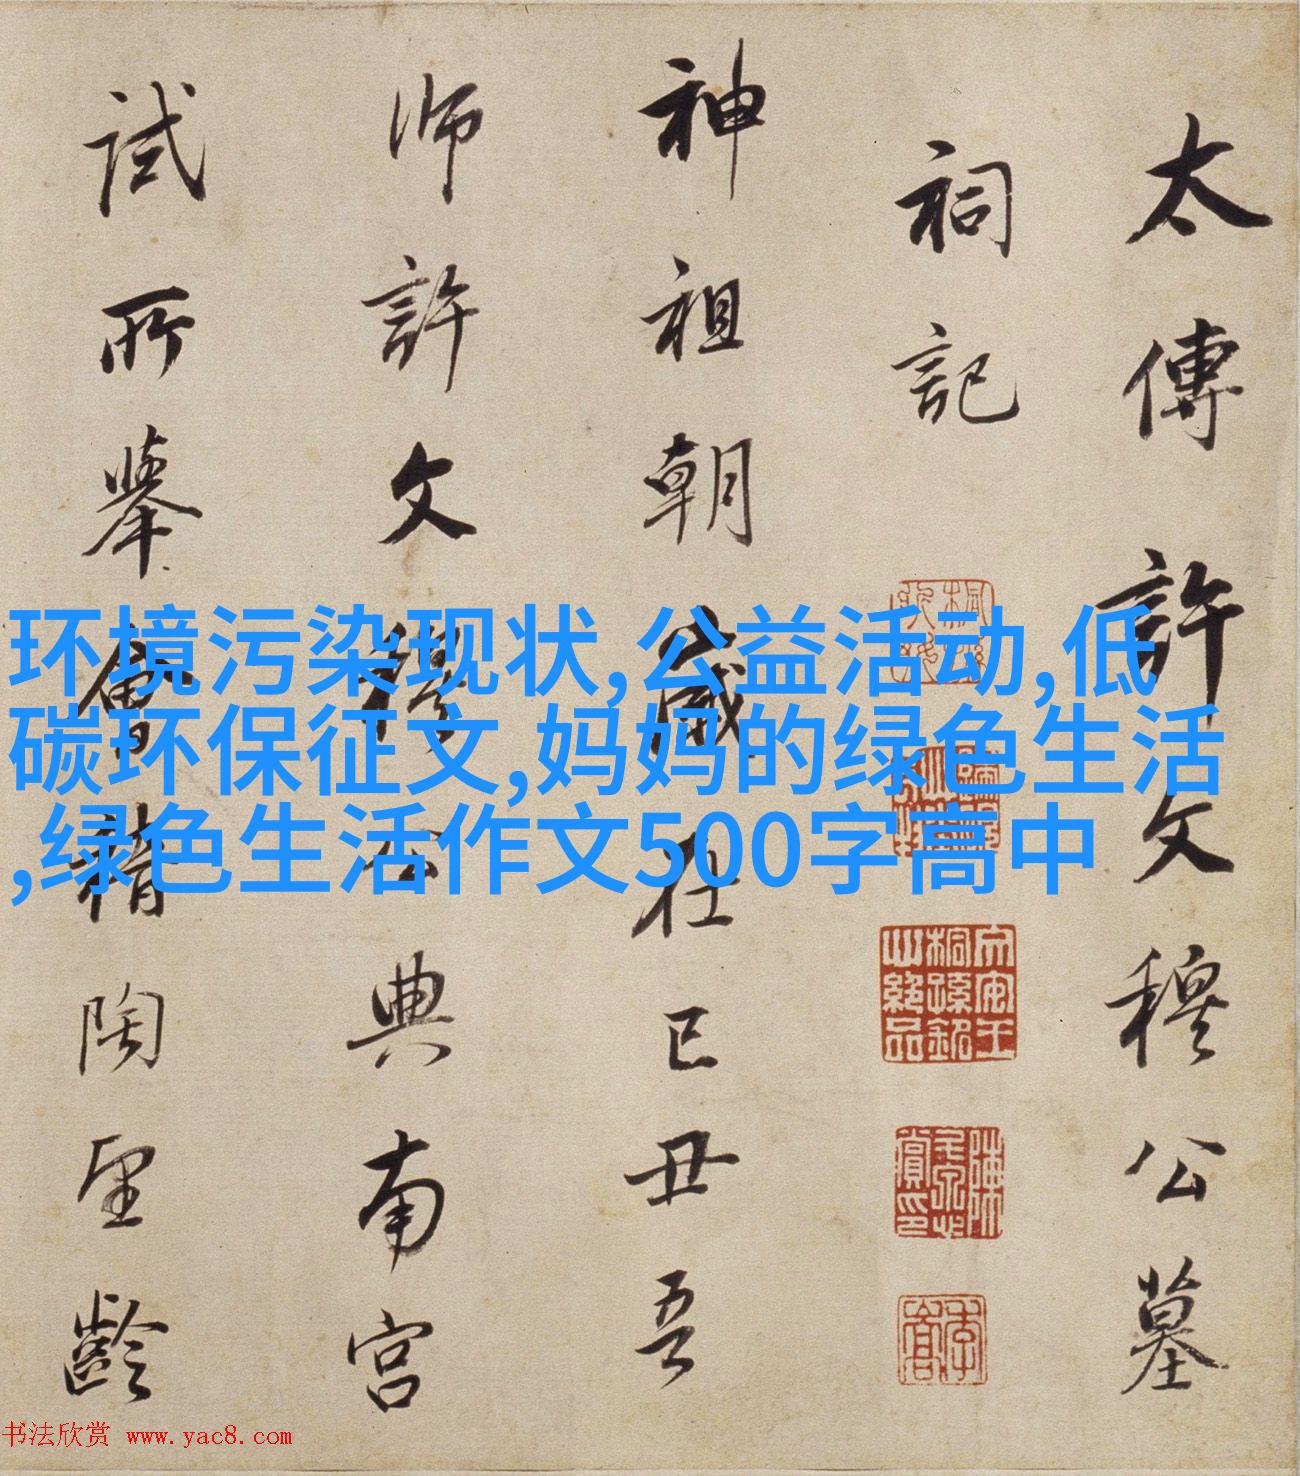 太傅許文穆公墓
祠記
神祖朝歲在己丑吾
師許文穆公典南宮
試所舉會稽陶望齡
环境污染现状,公益活动,低
碳环保征文,妈妈的绿色生活
,绿色生活作文500字高中
书法欣赏 www.yac8.com